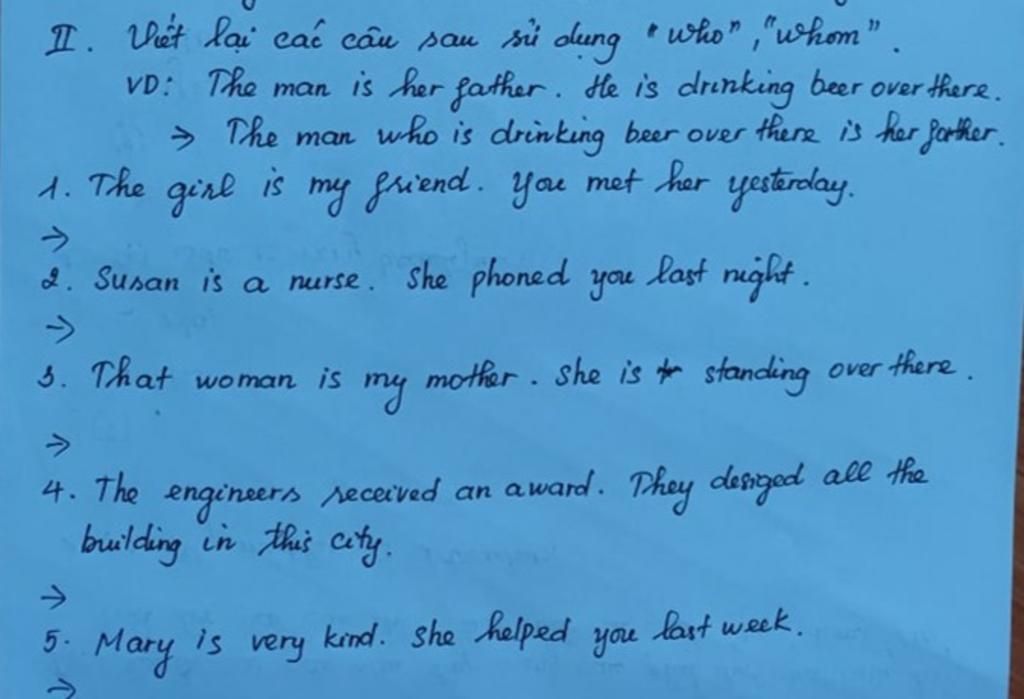 II. Viết lại các câu sau sử dụng "who", "whom".
VD: The man is her father. He is drinking beer over there.
→ The man who is drinking beer over there is her farther.
1. The girl is my friend. You met her yesterday.
→
2. Susan is a nurse. She phoned you last night.
→
3. That woman is my mother. She is standing over there.
→
4. The engineers received an award. They desiged all the
building in this city.
→
5. Mary is very kind. She helped you last week.
→